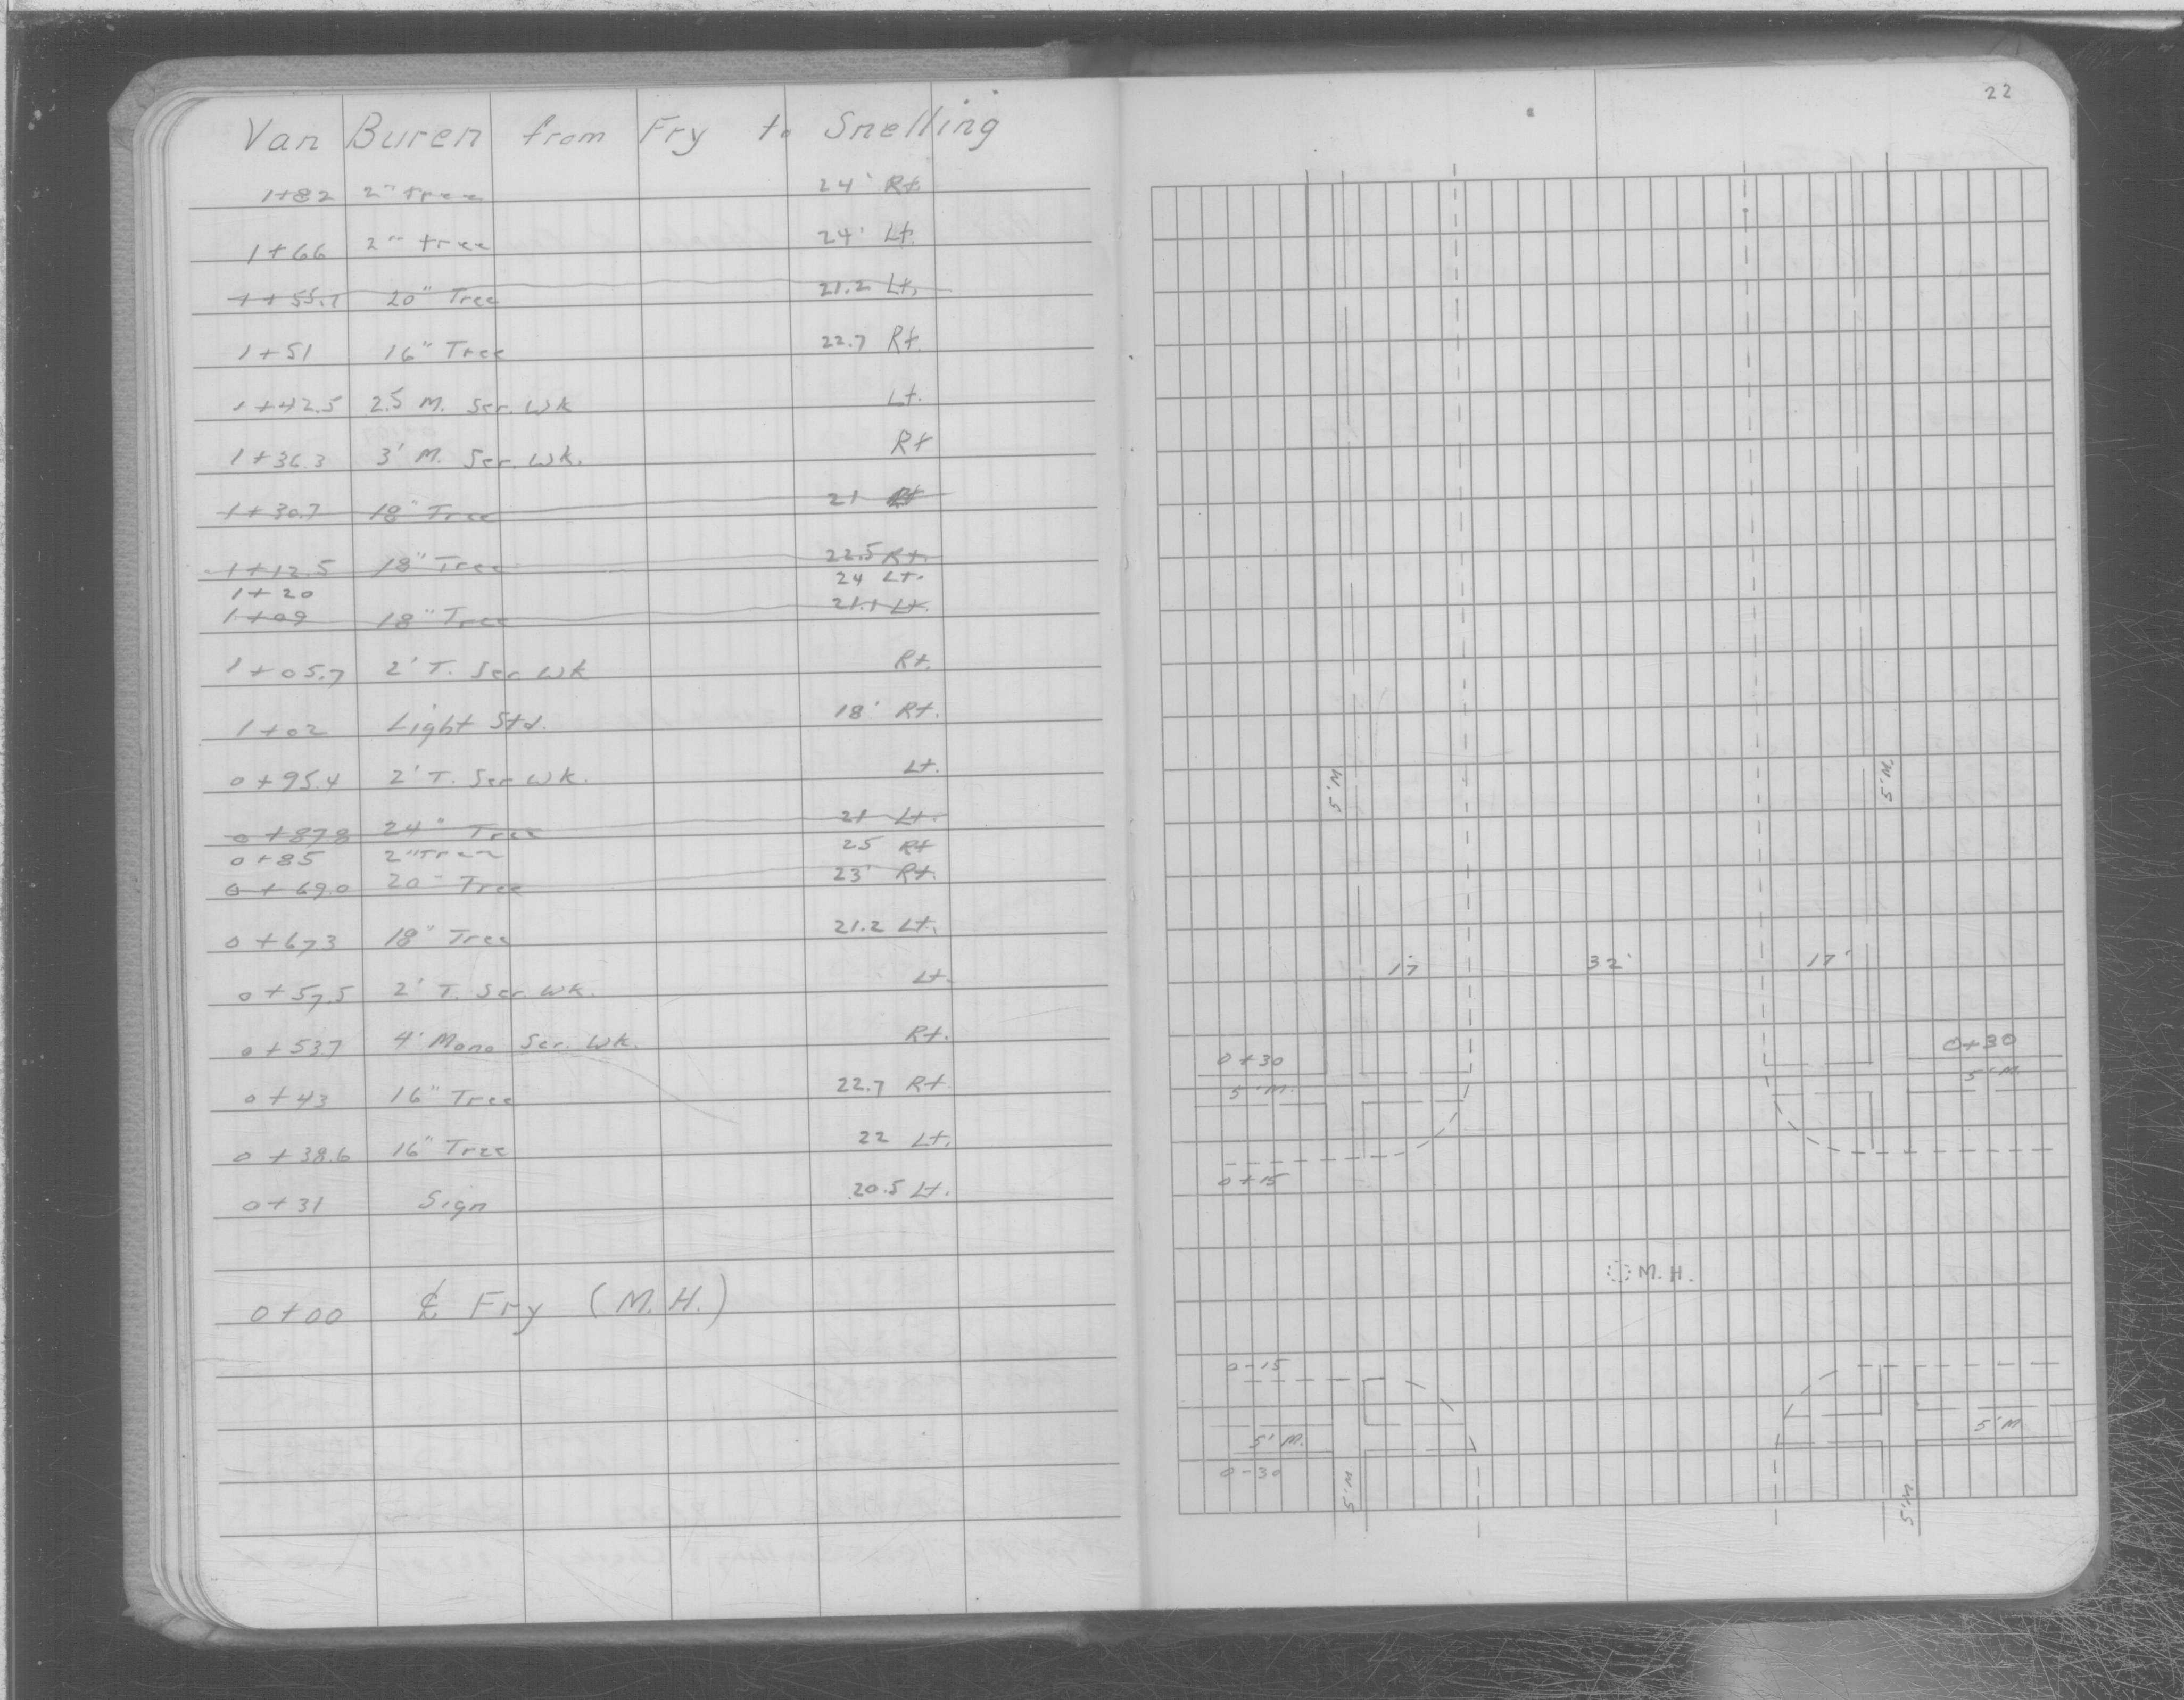 Van Buren from Fry to Snelling
1+82 2" tree 24' Rt
1+66 2" tree 24' Lt.
1+55.7 20" Tree 21.2 Lt.
1+51 16" Tree 22.7 Rt.
1+42.5 2.5 M. Ser. Wk Lt.
1+36.3 3' M. Ser. Wk. Rt
1+30.7 18" Tree 21 Rt
1+12.5 18" Tree 22.5 Rt.
1+20 24 Lt.
1+09 18" Tree 21.1 Lt.
1+05.7 2' T. Ser Wk Rt.
1+02 Light Std. 18' Rt.
0+95.4 2' T. Ser Wk. Lt.
0+87.8 24" Tree 21 Lt.
0+85 2" Tree 25 Rt
0+69.0 20" Tree 23' Rt.
0+67.3 18" Tree 21.2 Lt.
0+57.5 2' T. Ser. Wk. Lt.
0+53.7 4' Mono Ser. Wk. Rt.
0+43 16" Tree 22.7 Rt.
0+38.6 16" Tree 22 Lt.
0+31 Sign 20.5 Lt.
0+00 ℄ Fry (M.H.)
22
5'M 5'M.
17' 32' 17'
0+30 0+30
5'M. 5'M.
0+15
M.H.
0-15
5'M. 5'M
0-30
5'M 5'M.